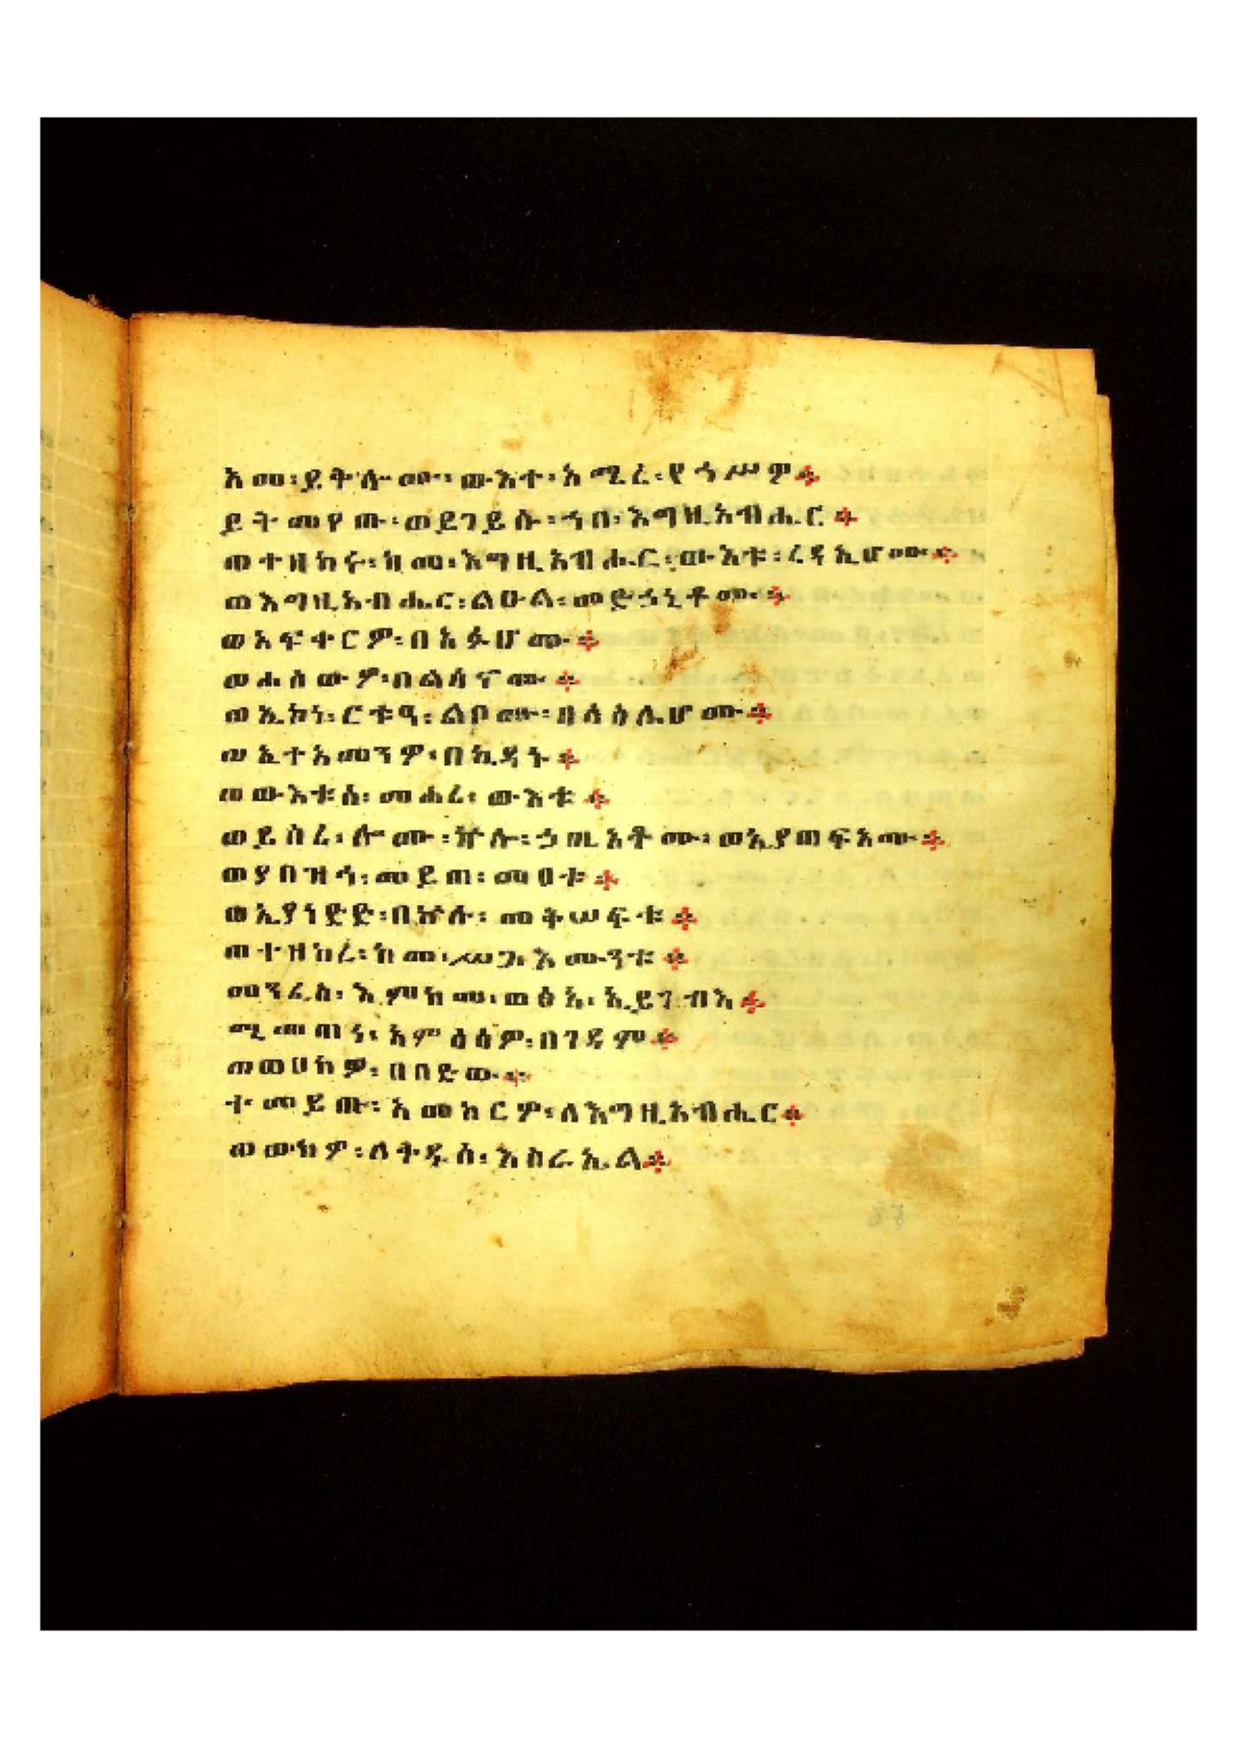 እመ፡ይቅትሎሙ፡ውእተ፡አሚረ፡የኀሥዎ፨
ይትመየጡ፡ወይገይሱ፡ኀበ፡እግዚአብሔር፨
ወተዘከሩ፡ከመ፡እግዚአብሔር፡ውእቱ፡ረዳኢሆሙ፨
ወእግዚአብሔር፡ልዑል፡መድኃኒቶሙ፨
ወአፍቀርዎ፡በአፉሆሙ፨
ወሐሰውዎ፡በልሳኖሙ፨
ወኢኮነ፡ርቱዓ፡ልቦሙ፡በላዕሌሆሙ፨
ወኢተአመንዎ፡በኪዳኑ፨
ወውእቱሰ፡መሐሪ፡ውእቱ፨
ወይሰሪ፡ሎሙ፡ኵሎ፡ኃጢአቶሙ፡ወኢያጠፍአሙ፨
ወያበዝኅ፡መይጠ፡መዐቱ፨
ወኢያነድድ፡በኵሉ፡መቅሠፍቱ፨
ወተዘከረ፡ከመ፡ሥጋ፡እሙንቱ፨
መንፈስ፡እምከመ፡ወፅአ፡ኢይገብእ፨
ሚመጠነ፡አምዕዕዎ፡በገዳም፨
ወወሀክዎ፡በበድው፨
ተመይጡ፡አመከርዎ፡ለእግዚአብሔር፨
ወወሀክዎ፡ለቅዱሰ፡እስራኤል፨